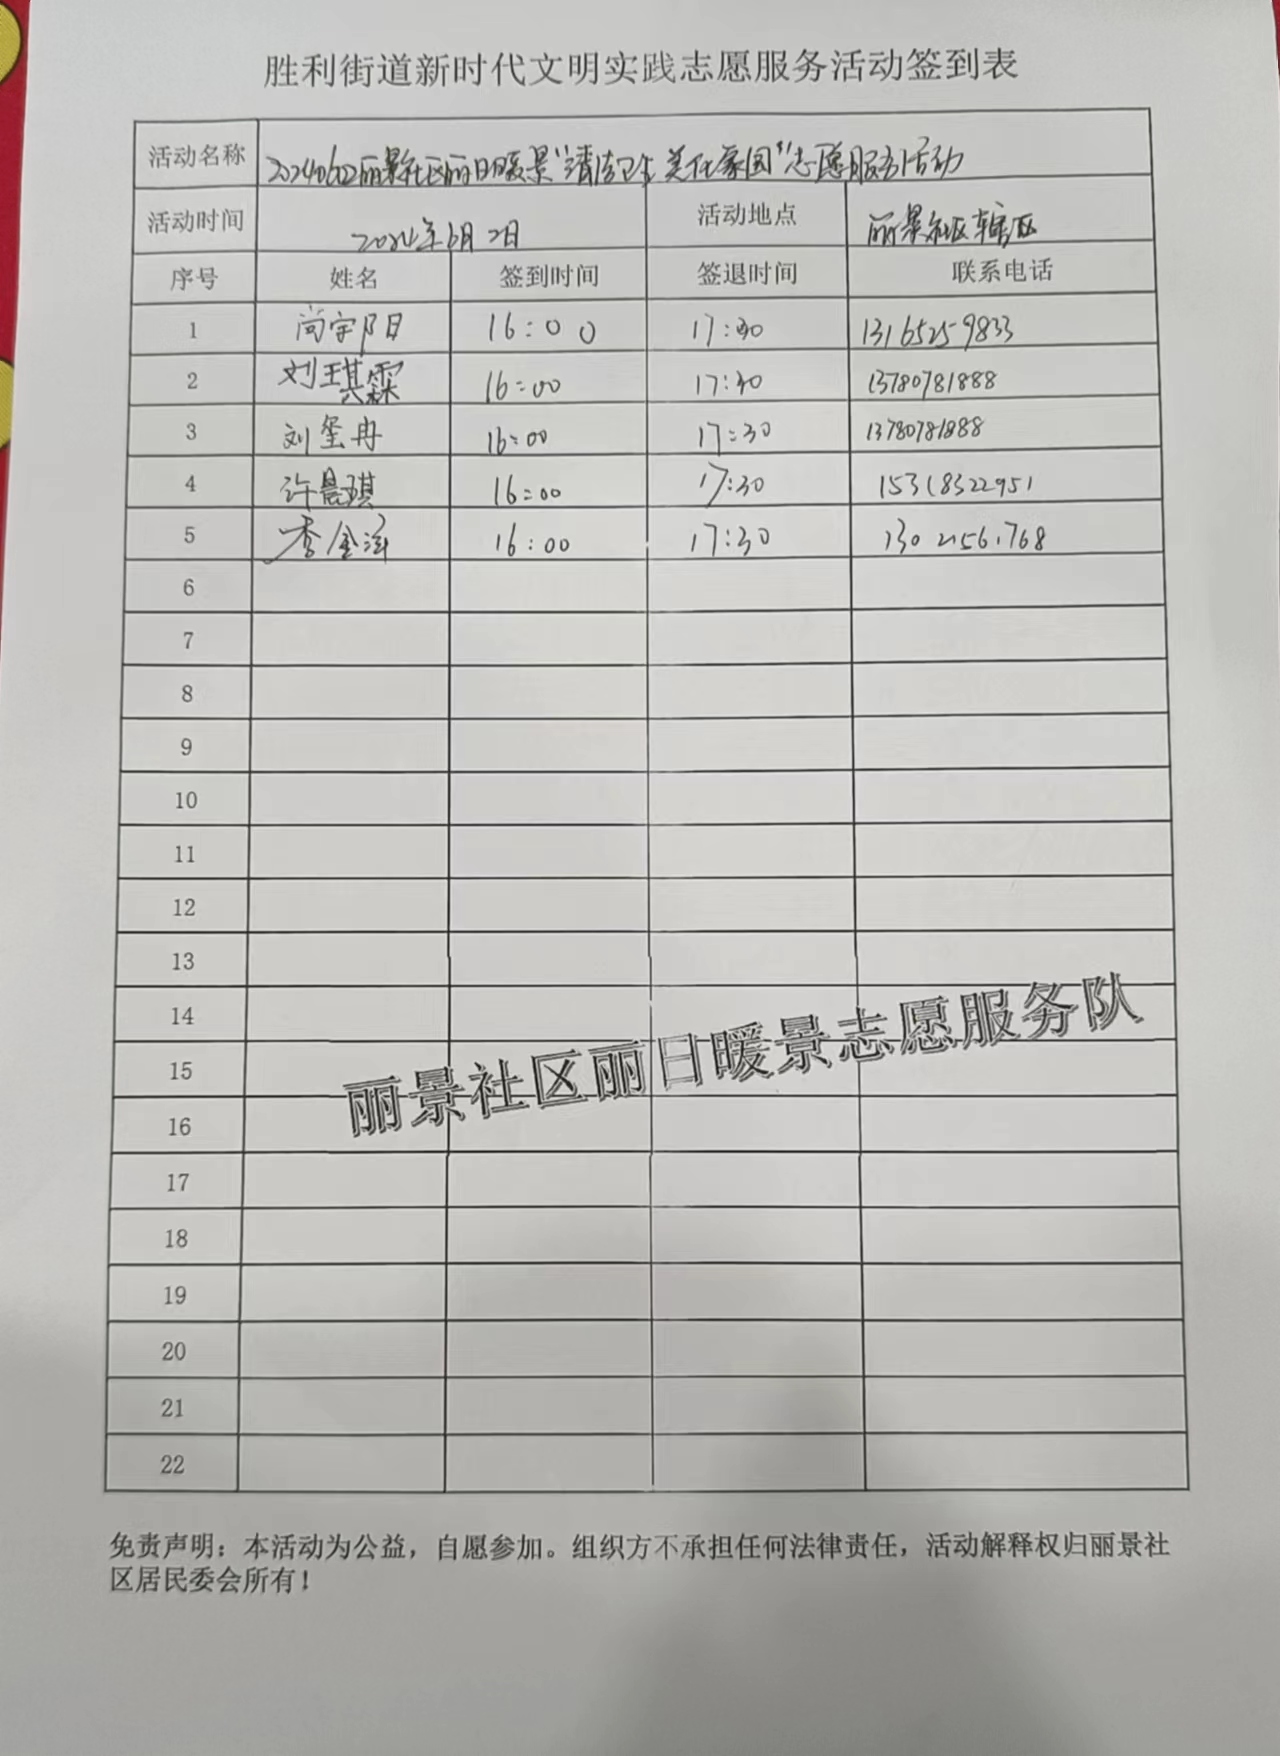 胜利街道新时代文明实践志愿服务活动签到表
活动名称 20240602丽景社区丽日暖景“清洁卫生 美在家园”志愿服务活动
活动时间 2024年6月2日 活动地点 丽景社区辖区
序号 姓名 签到时间 签退时间 联系电话
1 尚宇阳 16:00 17:30 13165259833
2 刘琪霖 16:00 17:30 13780781888
3 刘玺冉 16:00 17:30 13780781888
4 许晨琪 16:00 17:30 15318322951
5 金 16:00 17:30
6
7
8
9
10
11
12
13
14
15
16
17
18
19
20
21
22
丽景社区丽日暖景志愿服务队
免责声明：本活动为公益，自愿参加。组织方不承担任何法律责任，活动解释权归丽景社
区居民委会所有！